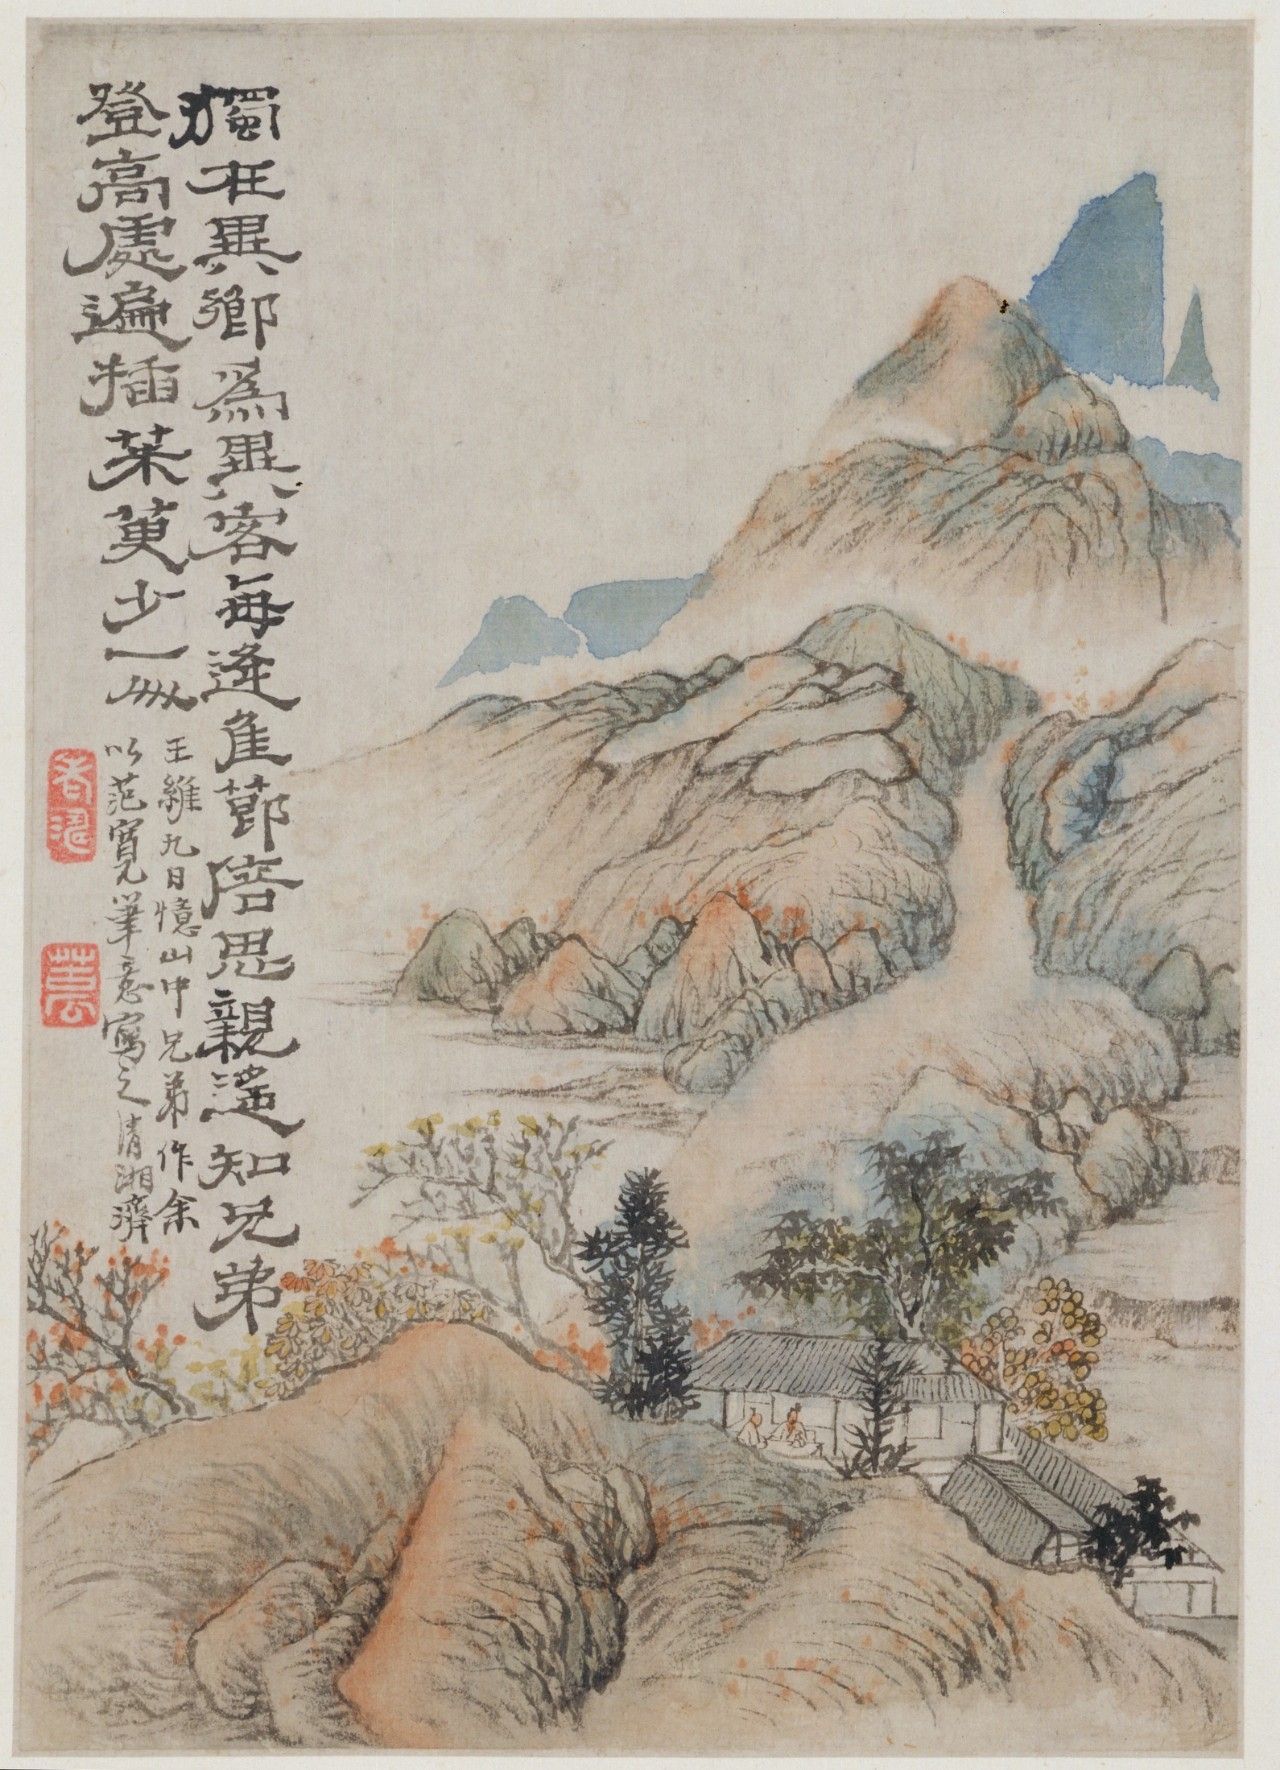 獨在異鄉爲異客每逢佳節倍思親遙知兄弟
登高處遍插茱萸少一人
王維九日憶山中兄弟作余
以范寬筆意寫之清湘濟
老濤
苦瓜